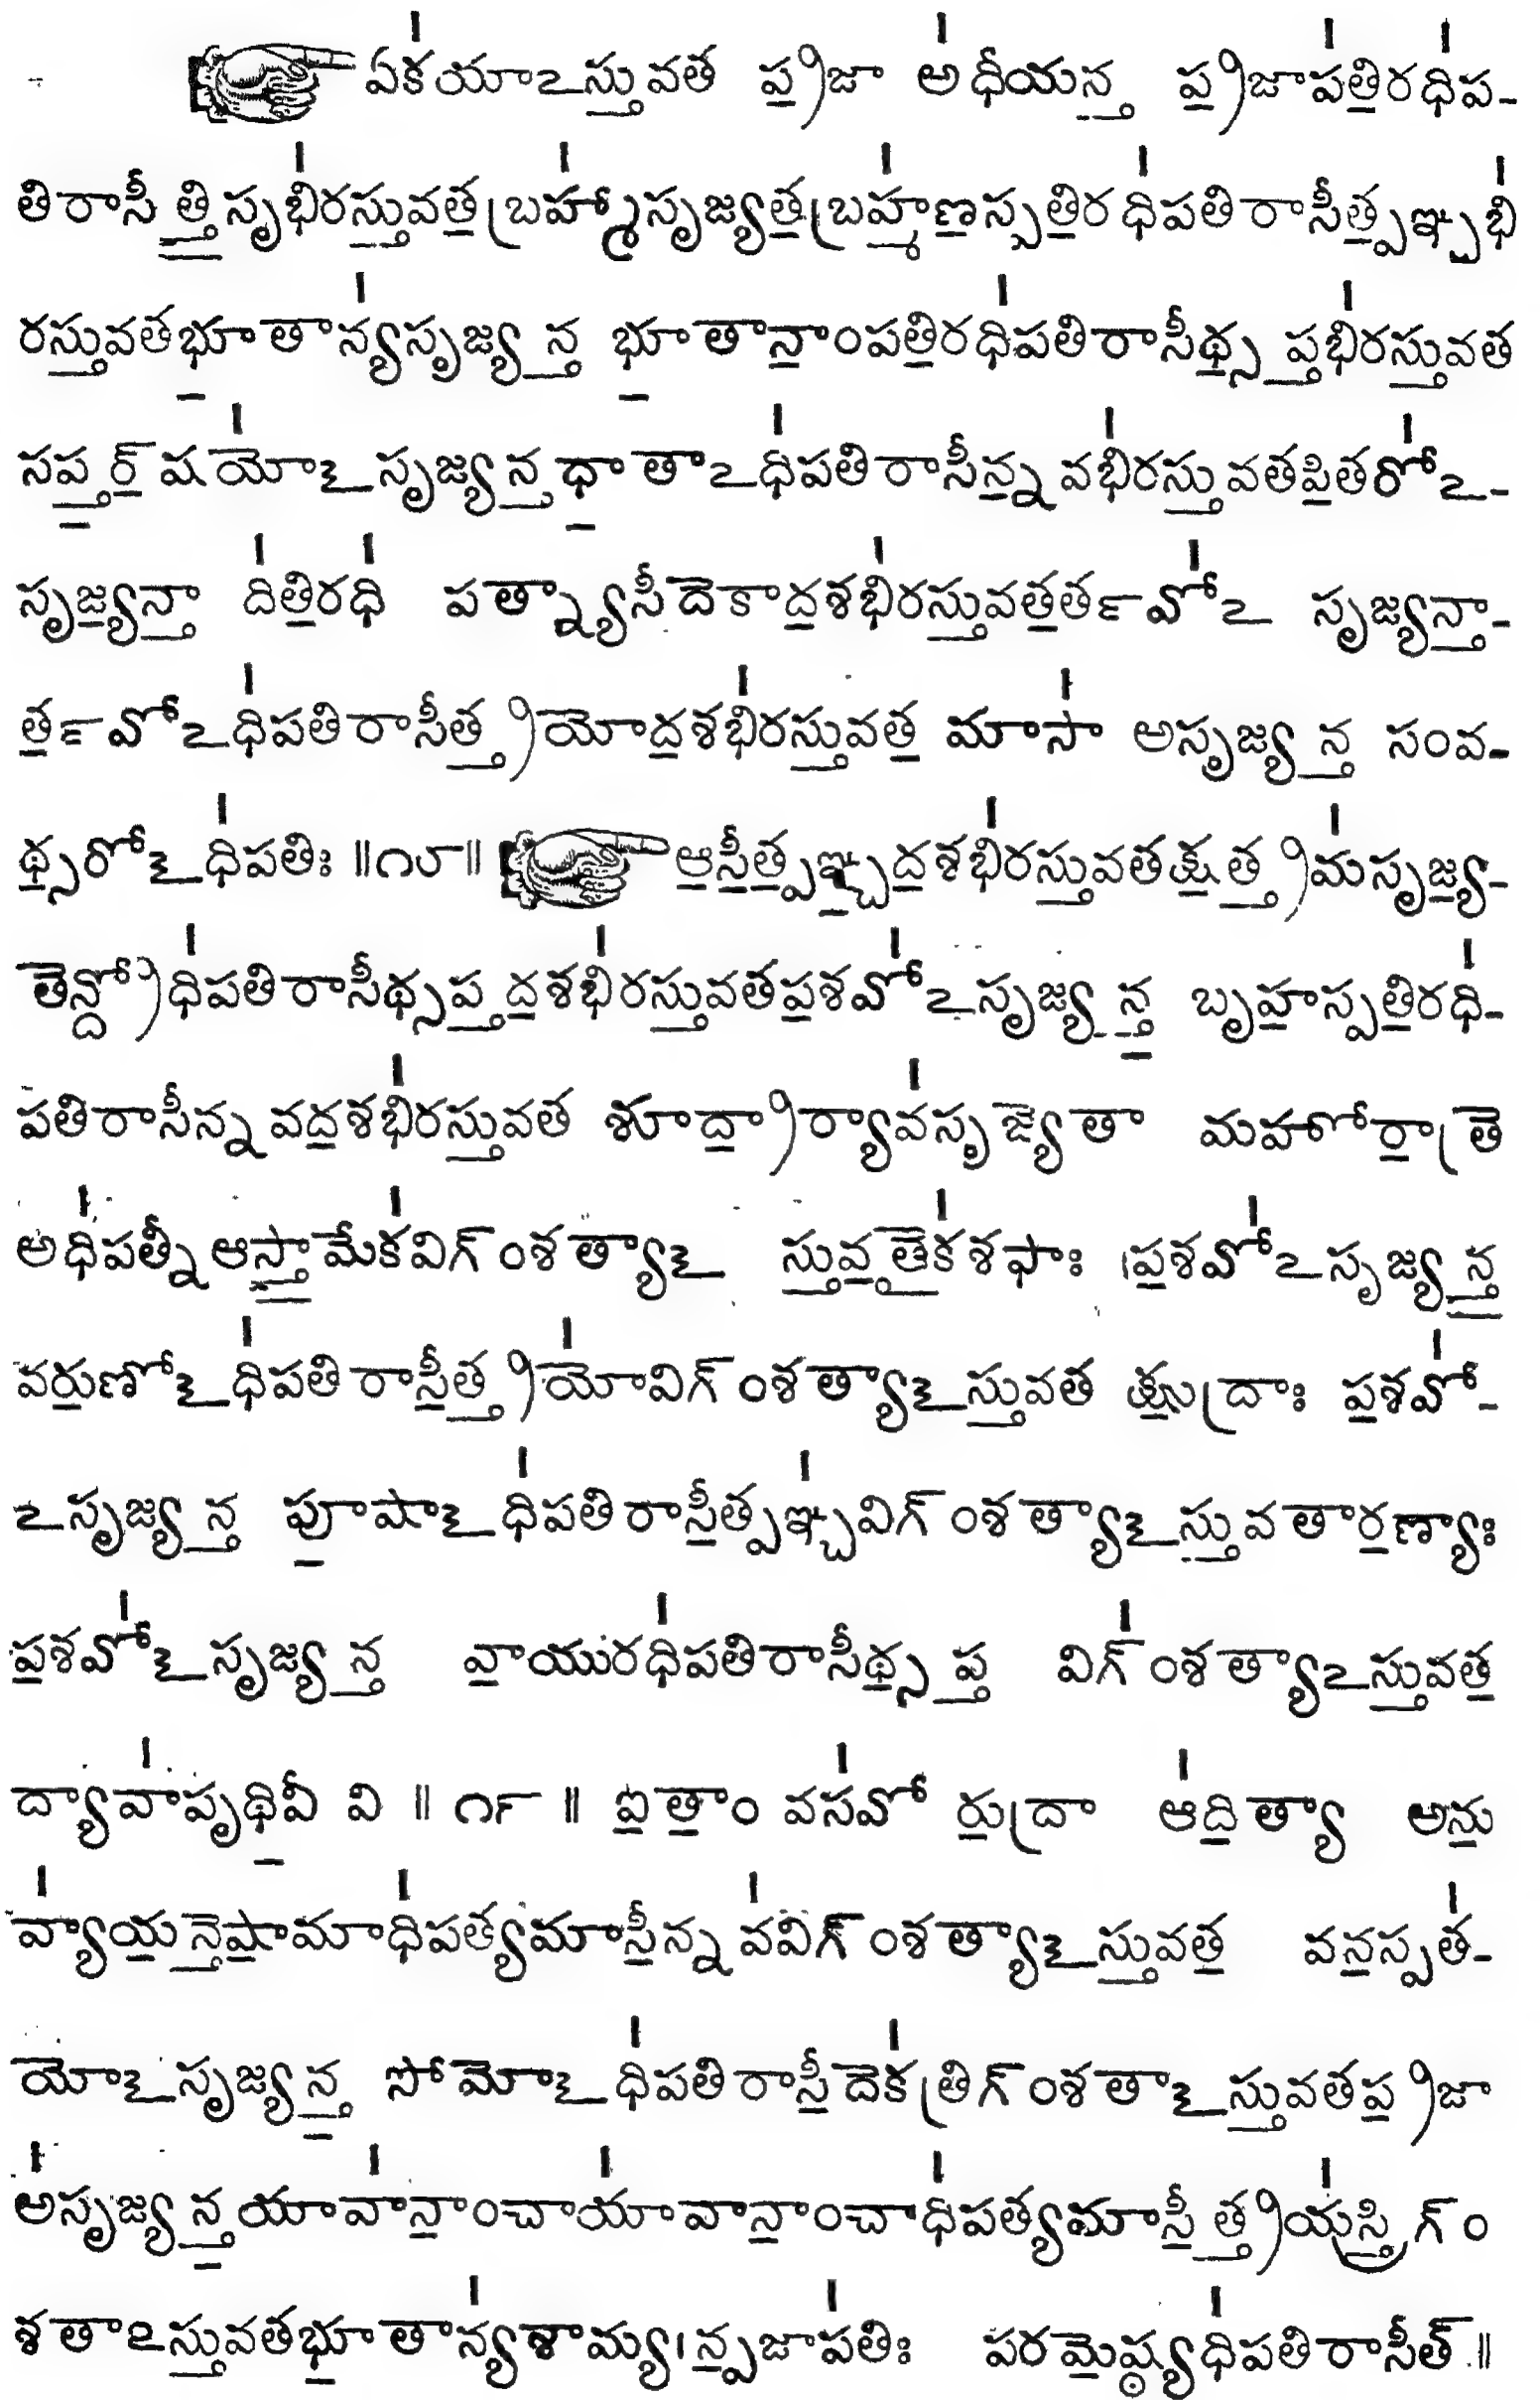 ఏక॑యాఽస్తు॒వత ప్ర॒జా అ॑ధీయన్త॒ ప్ర॒జాప॑తి॒రధి॑ప-
తిరాసీ॒త్తి॒సృభి॑రస్తువత॒బ్రహ్మా॑సృజ్యత॒బ్రహ్మ॑ణ॒స్పతి॒రధి॑పతిరాసీత్ప॒ఞ్చభి॑
రస్తువతభూ॒తాన్య॑సృజ్యన్త॒ భూ॒తానాం॒పతి॒రధి॑పతిరాసీథ్స॒ప్తభి॑రస్తువత
సప్త॒ర్‌షయో॑ఽసృజ్యన్త॒ధా॒తాఽధి॑పతిరాసీన్న॒వభి॑రస్తువతపి॒తరో॑ఽ-
సృజ్య॒న్తా ది॑తి॒రధి॑ పత్న్యాసీదెకాద॒శభి॑రస్తువత॒తర్‍వో॑ఽ సృజ్యన్తా॒-
త॒ర్‍వోఽధి॑పతిరాసీత్త్ర॒యోద॒శభి॑రస్తువత॒ మాసా॑ అసృజ్యన్త॒ సంవ-
థ్స॒రోఽధి॑పతిః ॥౧౮॥ ఆ॒సీ॒త్ప॒ఞ్చ॒ద॒శభి॑రస్తువతక్ష॒త్త్రమ॑సృజ్య॒-
తెన్ద్రోధి॑పతిరాసీథ్సప్త॒ద॒శభి॑రస్తువతప॒శవో॑ఽసృజ్యన్త॒ బృహ॒స్పతి॒రధి॑-
పతిరాసీన్నవద॒శభి॑రస్తువత శూద్రా॒ర్యావ॑సృజ్యెతా మహోరా॒త్రె
అధి॑పత్నీ ఆస్తా॒మేక॑విగ్‌ంశత్యాఽ స్తువ॒తైక॑శఫాః ప॒శవో॑ఽసృజ్యన్త॒
వరు॒ణోఽధి॑పతిరాసీ॒త్త్రయో॑విగ్‌ంశత్యాఽస్తువత క్షు॒ద్రాః ప॒శవో॑-
ఽసృజ్యన్త॒ పూ॒షాఽధి॑పతిరాసీ॒త్పఞ్చ॑విగ్‌ంశత్యాఽస్తువతార॒ణ్యాః
ప॒శవో॑ఽసృజ్యన్త॒ వా॒యురధి॑పతిరాసీథ్స॒ప్త విగ్॑‌ంశత్యాఽస్తువత॒
ద్యావా॑పృథి॒వీ వి ॥ ౧౯ ॥ ఐ॒తాం॒ వస॑వో రు॒ద్రా ఆ॑ది॒త్యా అను॒
వ్యా॑య॒న్తె॒షా॒మాధి॑పత్యమాసీ॒న్నవ॑విగ్‌ంశత్యాఽస్తువత॒ వన॒స్పత॑-
యోఽసృజ్యన్త॒ సోమోఽధి॑పతిరాసీ॒దెక॑త్రిగ్‌ంశతాఽస్తువతప్ర॒జా
అ॑సృజ్యన్త॒యావా॑నాం॒చాయా॑వానాం॒చాధి॑పత్యమాసీ॒త్త్రయ॑స్త్రిగ్‌ం
శతాఽస్తువతభూ॒తాన్య॑శామ్యన్ప్ర॒జాప॑తిః పరమె॒ష్ఠ్యధి॑పతిరాసీత్ ॥